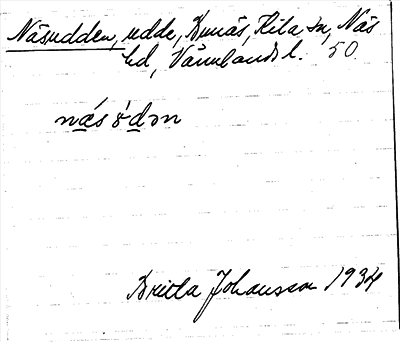 Näsudden, udde, Bunäs, Kila sn, Näs
hd, Värmlands l. 50
næ´s ò̀dən
Britta Johansson 1934